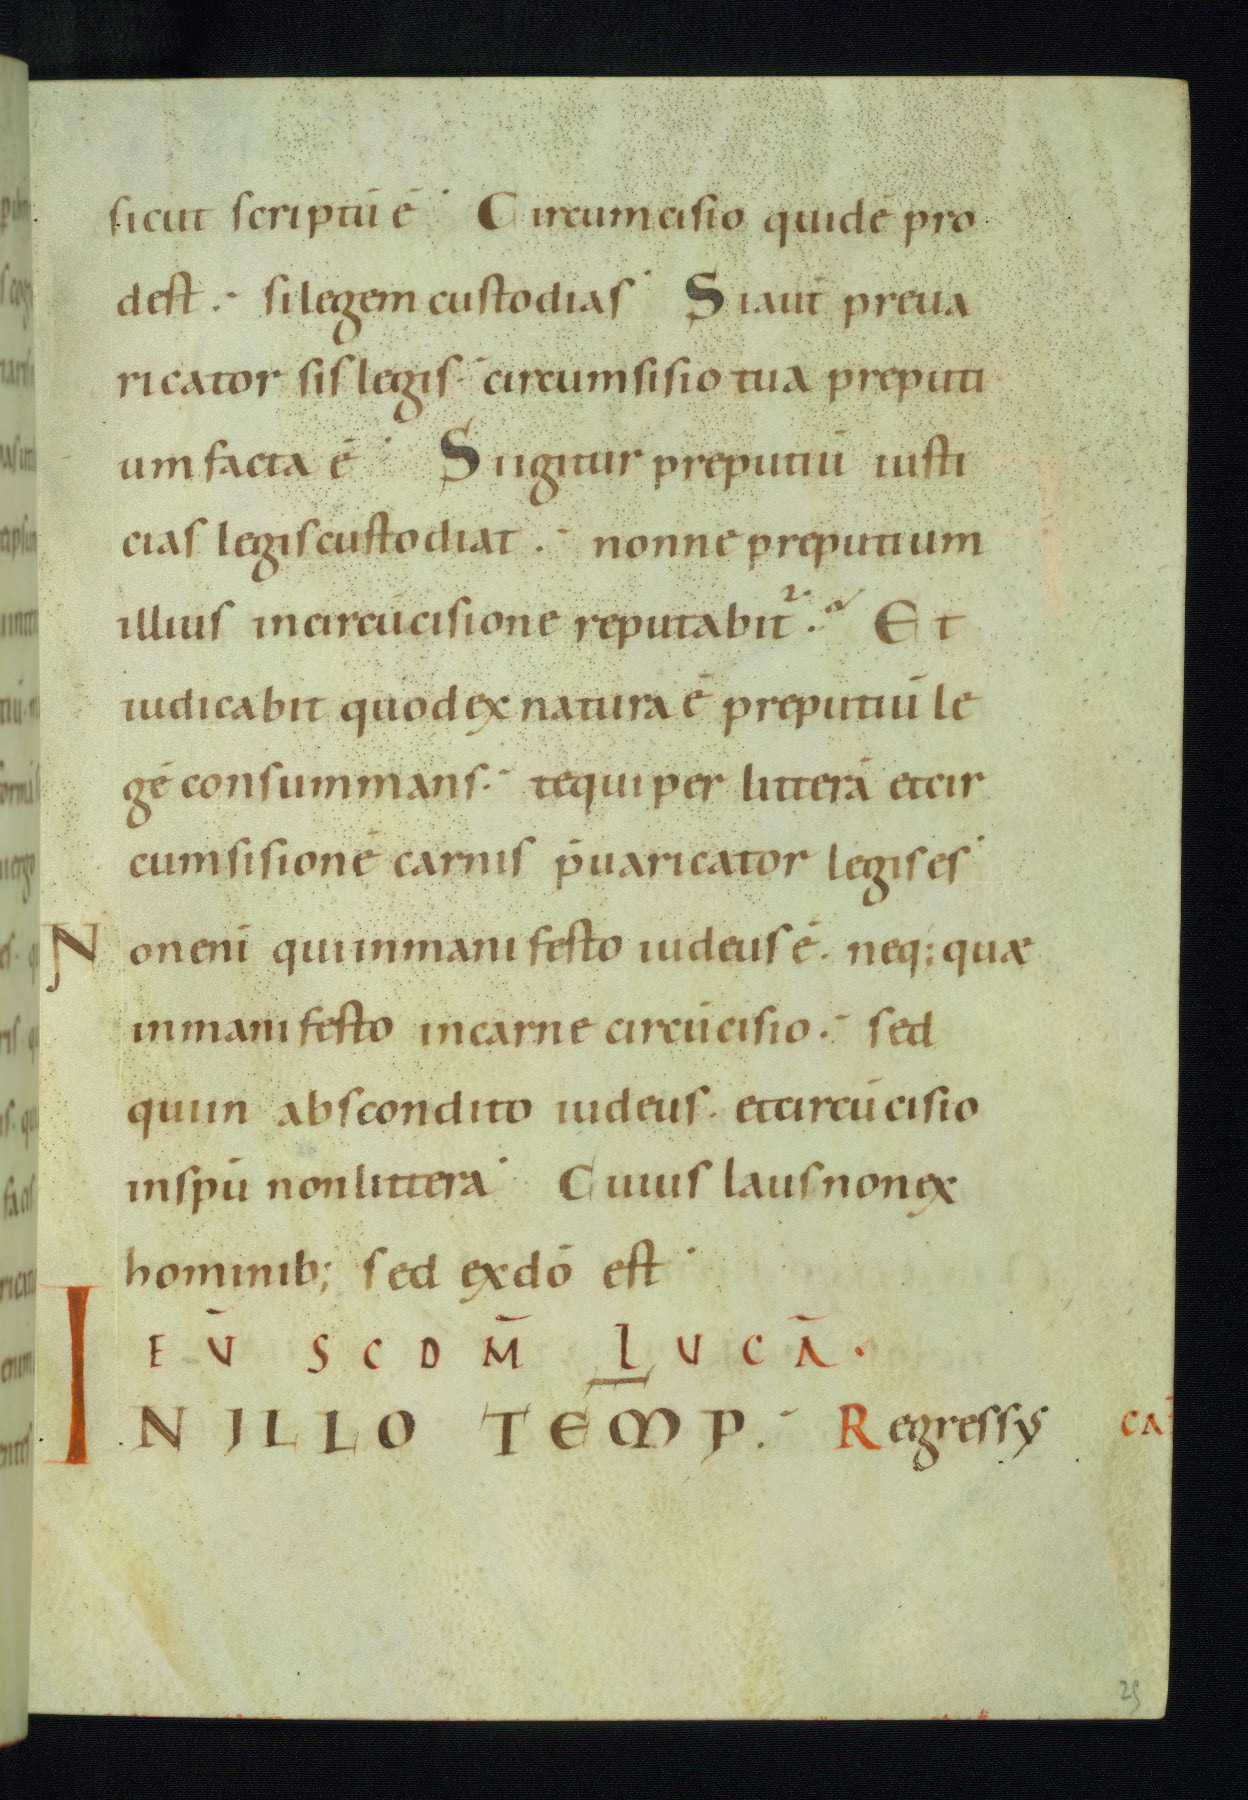 sicut scriptū ē· Circumcisio quidē pro
dest·̄ si legem custodias· Si aut̄ preua
ricator sis legis·̄ circumsisio tua preputi
um facta ē· Si igitur preputiū iusti
cias legis custodiat·̄ nonne preputium
illius in circūcisione reputabit᷑· Et
iudicabit quod ex natura ē preputiū le
gē consummans·̄ te qui per litterā et cir
cumsisionē carnis p̄uaricator legis es·
Non eni̅ qui in manifesto iudeus ē· neq; quæ
in manifesto in carne circūcisio·̄ sed
qui in abscondito iudeus· et circūcisio
in sp̄u non littera· Cuius laus non ex
hominib; sed ex dō est·
EV̄ SCDM̄ LVCĀ·
IN ILLO TEMP·̄ Regressus CA
25